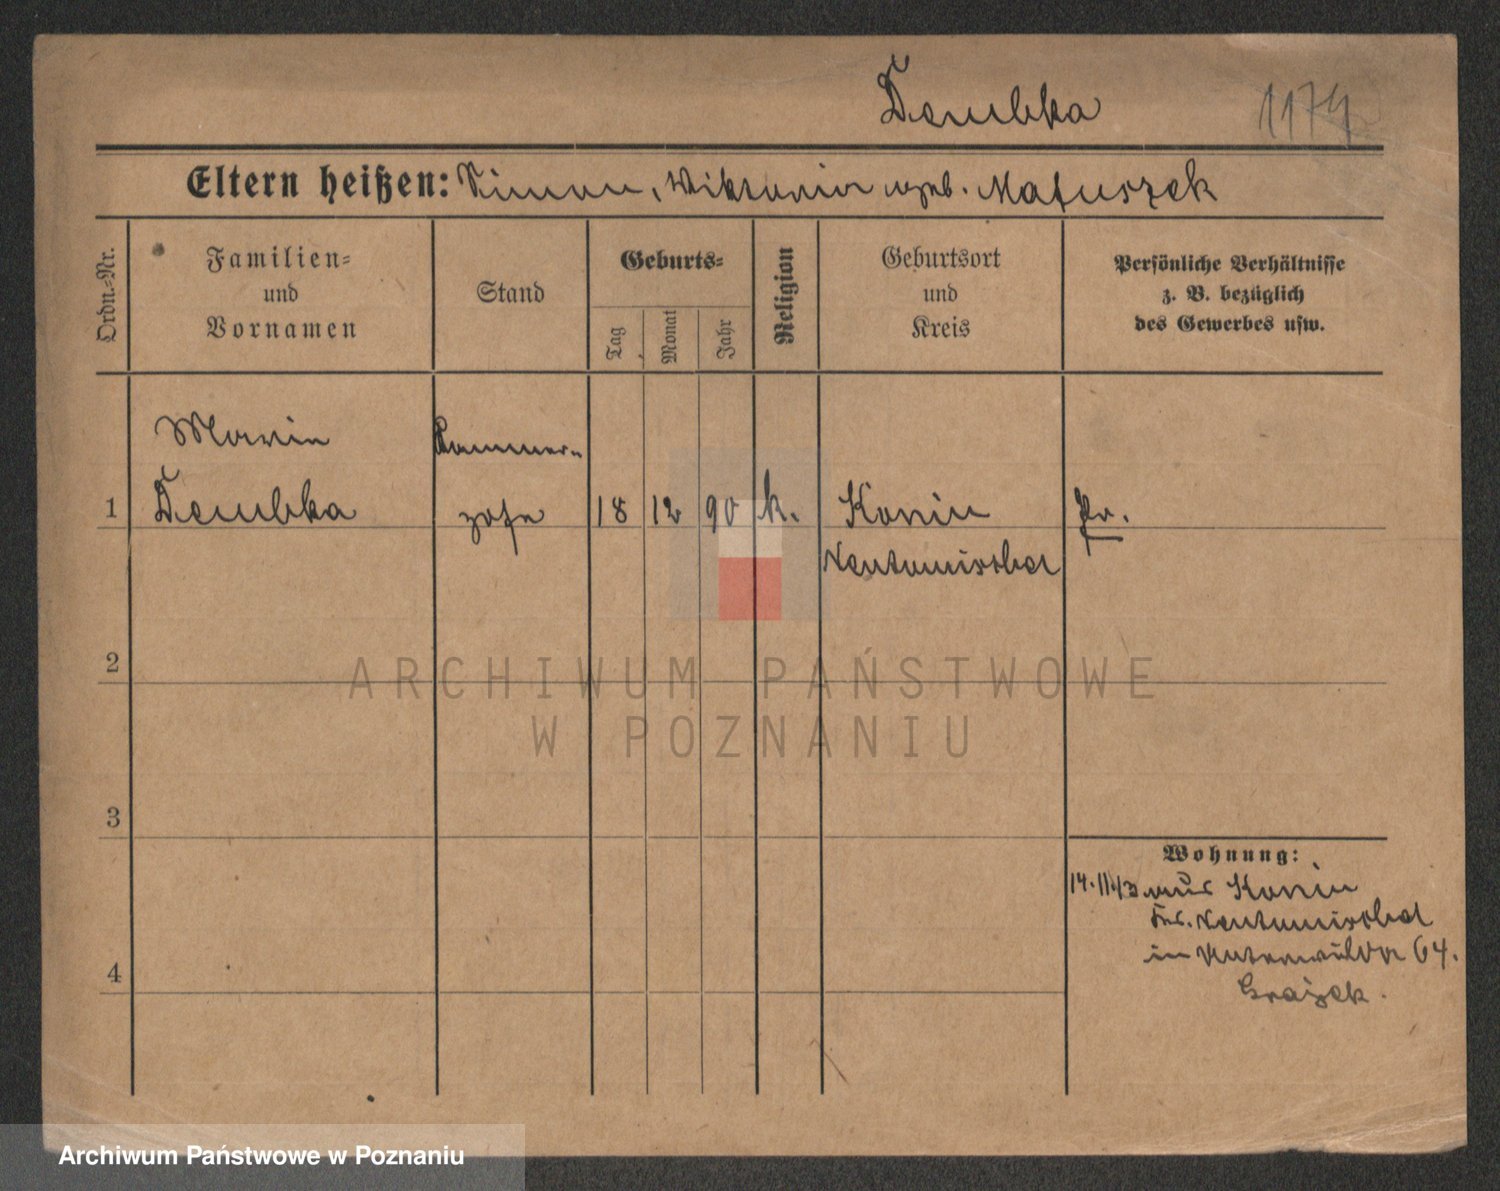 Dembka 1174
Eltern heißen: Simon, Wiktoria geb. Matuszek
Ordn.-Nr.
Familien-
und
Vornamen
Stand
Geburts-
Tag
Monat
Jahr
Religion
Geburtsort
und
Kreis
Persönliche Verhältnisse
z. B. bezüglich
des Gewerbes usw.
Maria Kammer-
1 Dembka zofe 18 12 90 k. Konin Pr.
Neutomischel
2
ARCHIWUM PAŃSTWOWE
W POZNANIU
3
Wohnung:
14.11.13 aus Konin
Krs. Neutomischel
in 64.
4
Archiwum Państwowe w Poznaniu